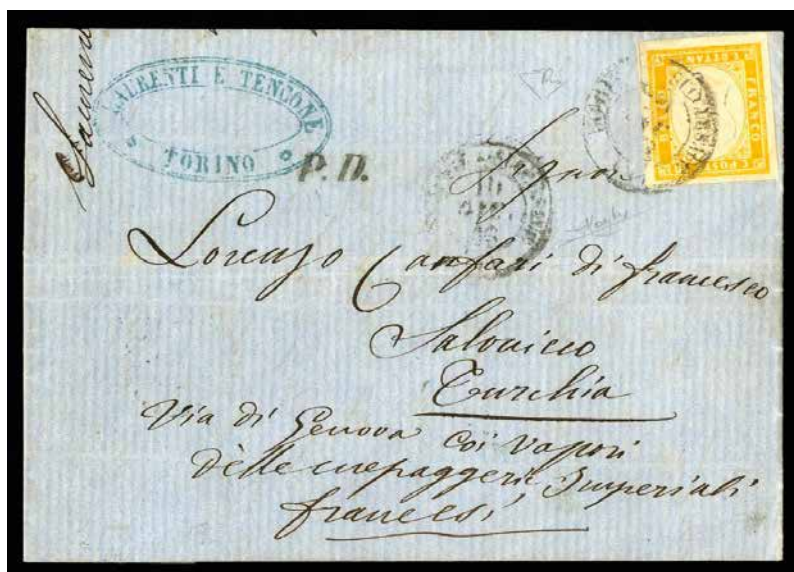 LAURENTI E TENCONE
TORINO
P.D.
FRANCO
C. OTTAN
POSTE
Signor
Lorenzo Canfari di francesco
Salonicco
Turchia
Via di Genova coi vapori
delle messaggerie Imperiali
francesi